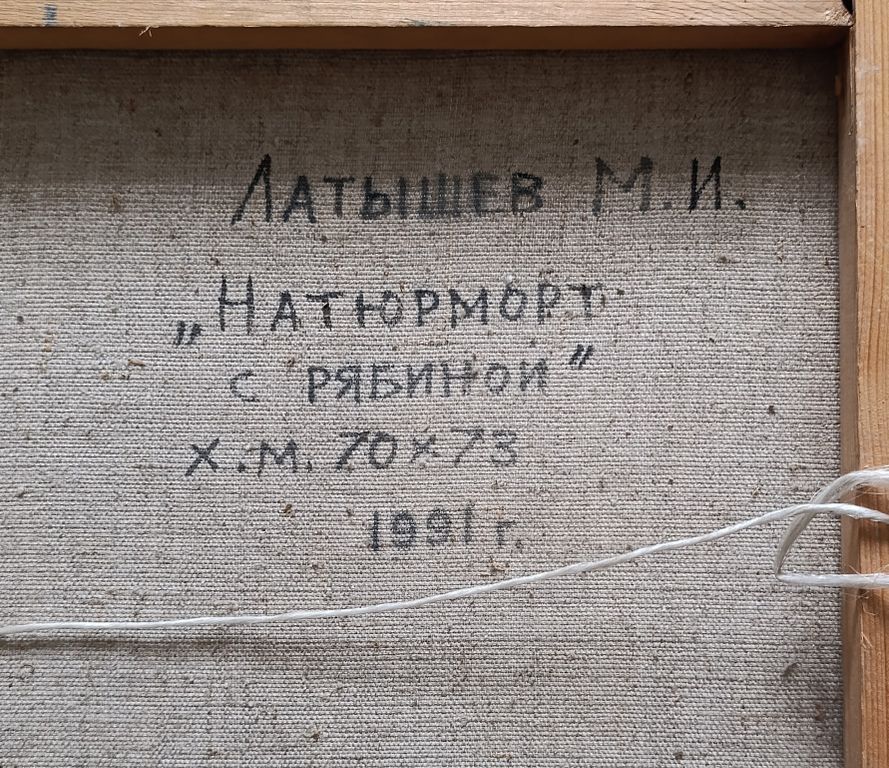 Латышев М.И.
„Натюрморт
с рябиной”
х.м. 70х73
1991 г.